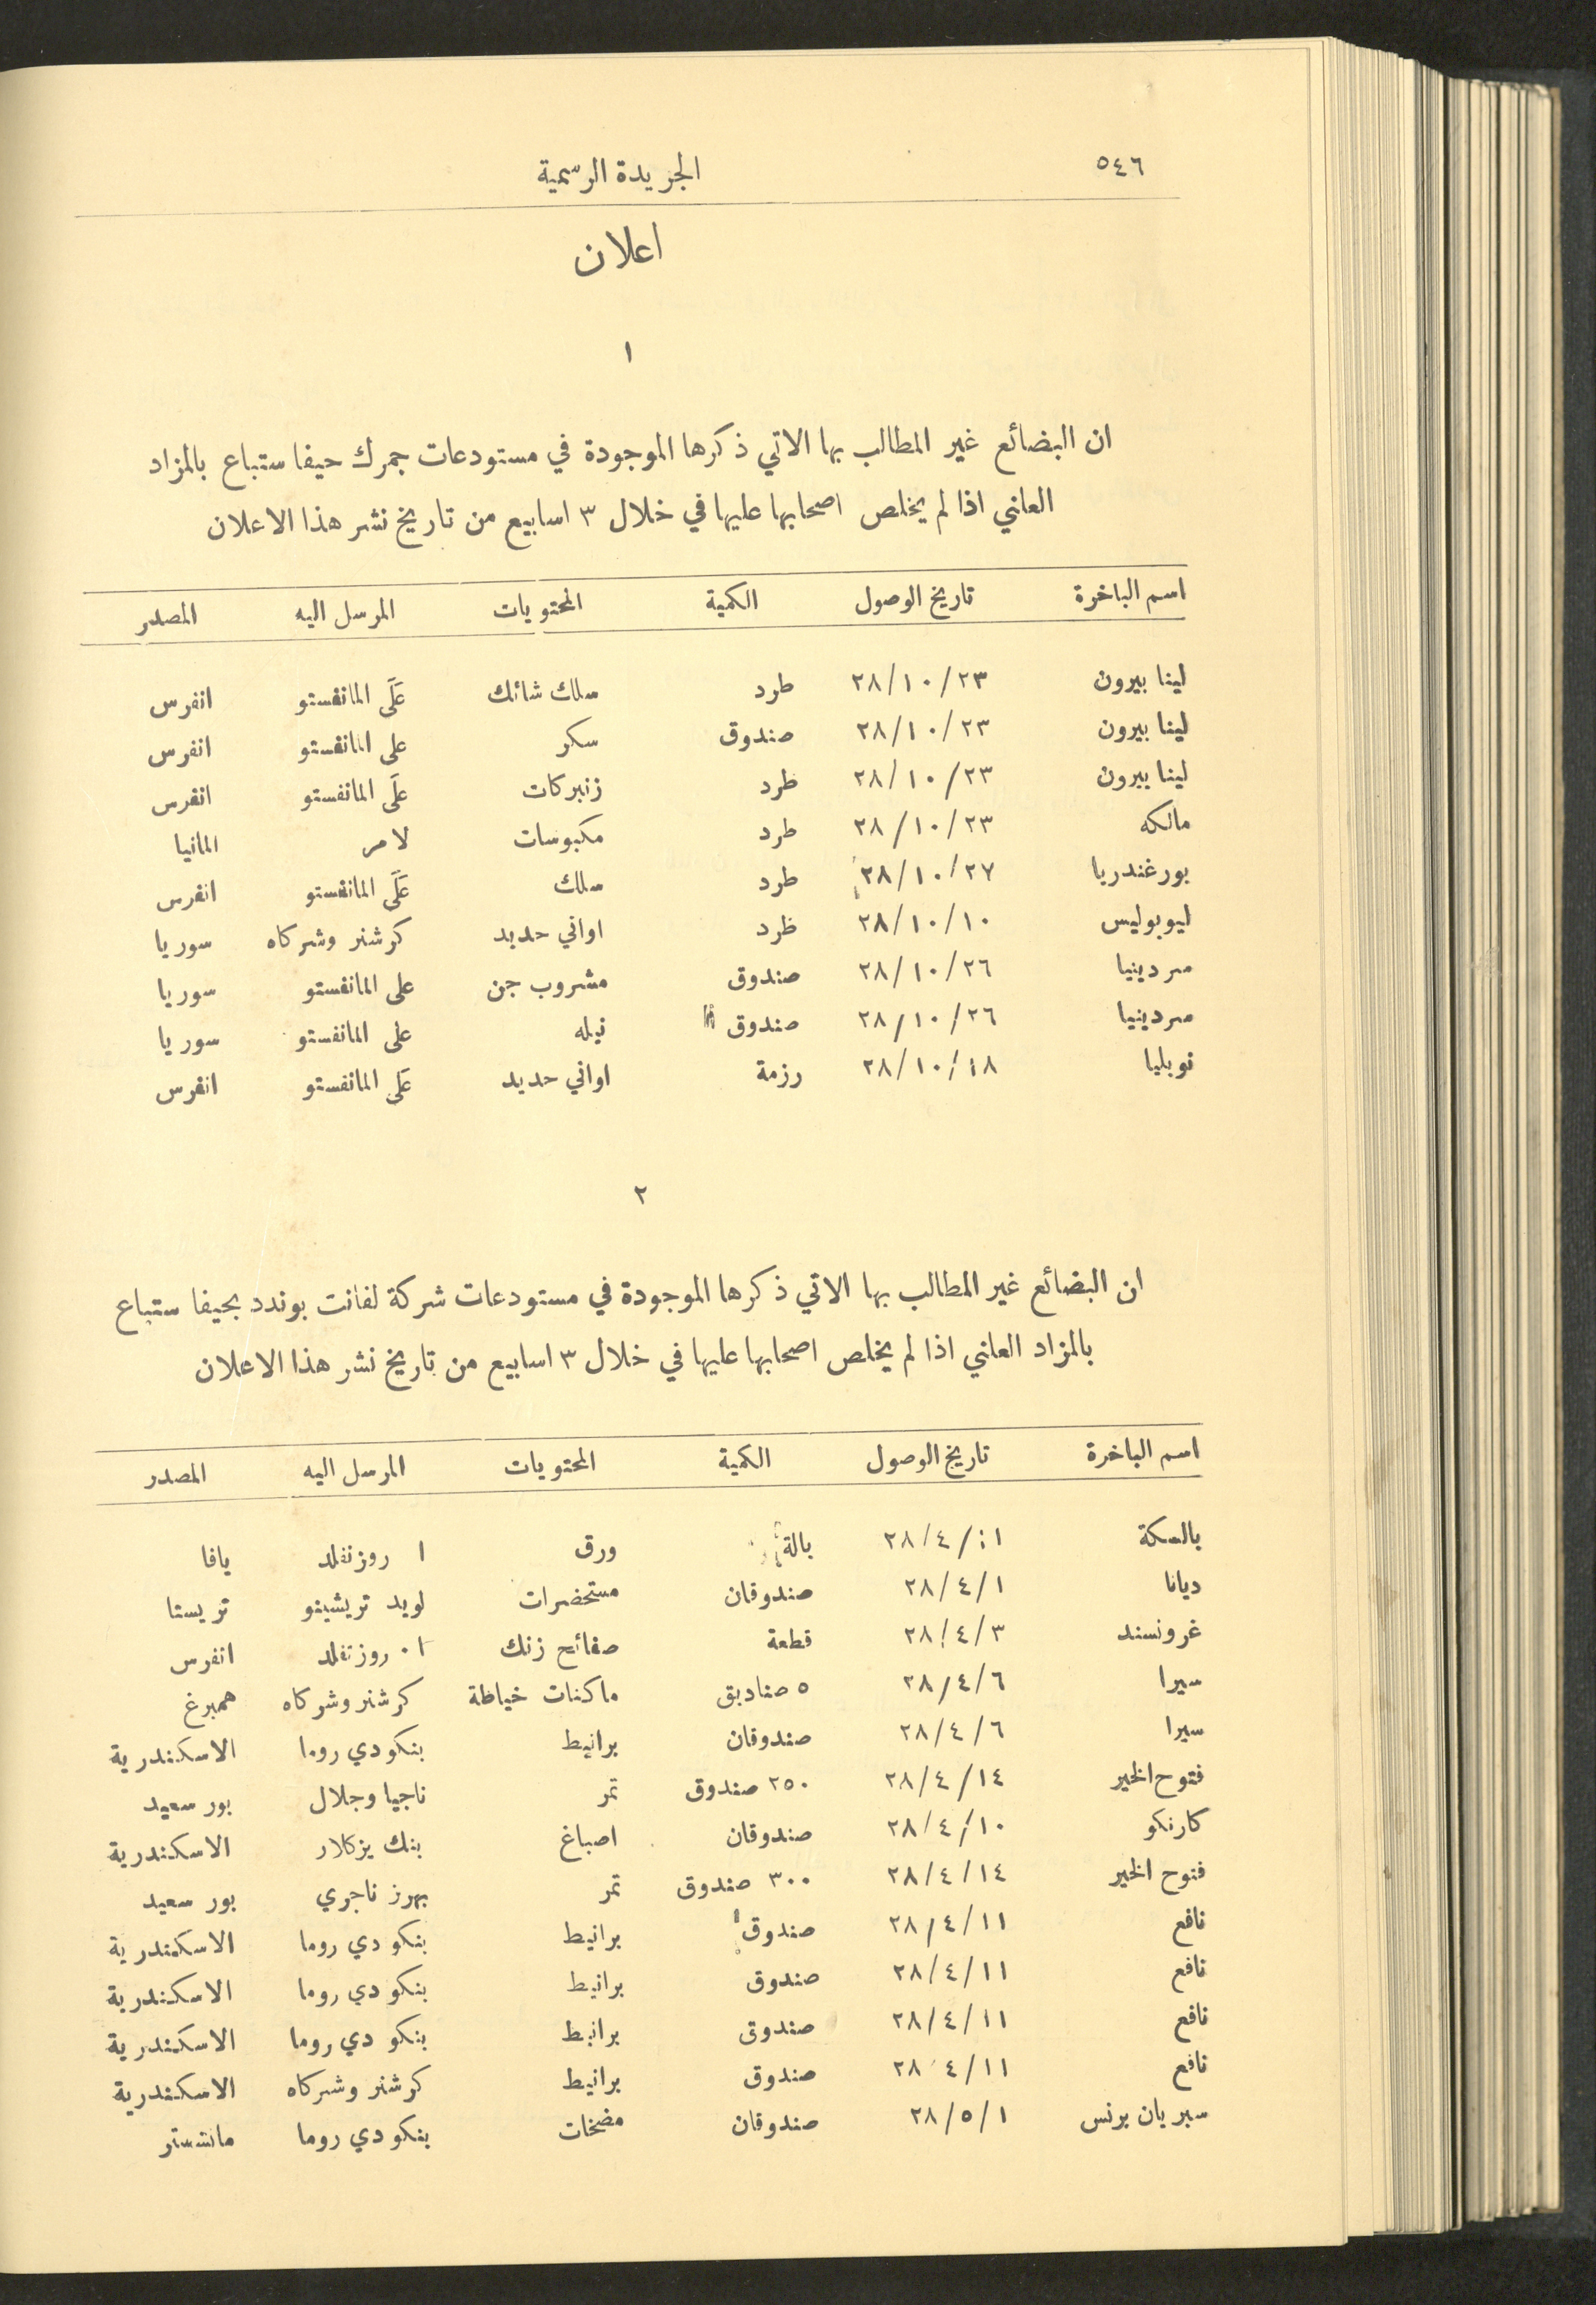 ٥٤٦
الجريدة الرسمية
اعلان
١
ان البضائع غير المطالب بها الاتي ذكرها الموجودة في مستودعات جمرك حيفا ستباع بالمزاد
العلني اذا لم يخلص اصحابها عليها في خلال ٣ اسابيع من تاريخ نشر هذا الاعلان
اسم الباخرة تاريخ الوصول الكمية المحتويات المرسل اليه المصدر
لينا بيرون ٢٨/١٠/٢٣ طرد سلك شائك عَلَى المانفستو انفرس
لينا بيرون ٢٨/١٠/٢٣ صندوق سكر على المانفستو انفرس
لينا بيرون ٢٨/١٠/٢٣ طرد زنبركات عَلَى المانفستو انفرس
مالكه ٢٨/١٠/٢٣ طرد مكبوسات لامر المانيا
بورغندريا ٢٨/١٠/٢٧ طرد سلك عَلَى المانفستو انفرس
ليوبوليس ٢٨/١٠/١٠ طرد اواني حديد كرشنر وشركاه سوريا
سردينيا ٢٨/١٠/٢٦ صندوق مشروب جن على المانفستو سوريا
سردينيا ٢٨/١٠/٢٦ صندوق نيله على المانفستو سوريا
نوبليا ٢٨/١٠/١٨ رزمة اواني حديد عَلَى المانفستو انفرس
٢
ان البضائع غير المطالب بها الاتي ذكرها الموجودة في مستودعات شركة لفانت بوندد بحيفا ستباع
بالمزاد العلني اذا لم يخلص اصحابها عليها في خلال ٣ اسابيع من تاريخ نشر هذا الاعلان
اسم الباخرة تاريخ الوصول الكمية المحتويات المرسل اليه المصدر
بالسكة ٢٨/٤/١ بالة ورق ا روزنفلد يافا
ديانا ٢٨/٤/١ صندوقان مستحضرات لويد تريشينو تريستا
غرونسند ٢٨/٤/٣ قطعة صفائح زنك ا٠ روزنفلد انفرس
سيرا ٢٨/٤/٦ ٥ صناديق ماكنات خياطة كرشنر وشركاه همبرغ
سيرا ٢٨/٤/٦ صندوقان برانيط بنكو دي روما الاسكندرية
فتوح الخير ٢٨/٤/١٤ ٢٥٠ صندوق تمر ناجيا وجلال بور سعيد
كارنكو ٢٨/٤/١٠ صندوقان اصباغ بنك يزكلار الاسكندرية
فتوح الخير ٢٨/٤/١٤ ٣٠٠ صندوق تمر بهرز ناجري بور سعيد
نافع ٢٨/٤/١١ صندوق برانيط بنكو دي روما الاسكندرية
نافع ٢٨/٤/١١ صندوق برانيط بنكو دي روما الاسكندرية
نافع ٢٨/٤/١١ صندوق برانيط بنكو دي روما الاسكندرية
نافع ٢٨/٤/١١ صندوق برانيط كرشنر وشركاه الاسكندرية
سبريان برنس ٢٨/٥/١ صندوقان مضخات بنكو دي روما مانشستر